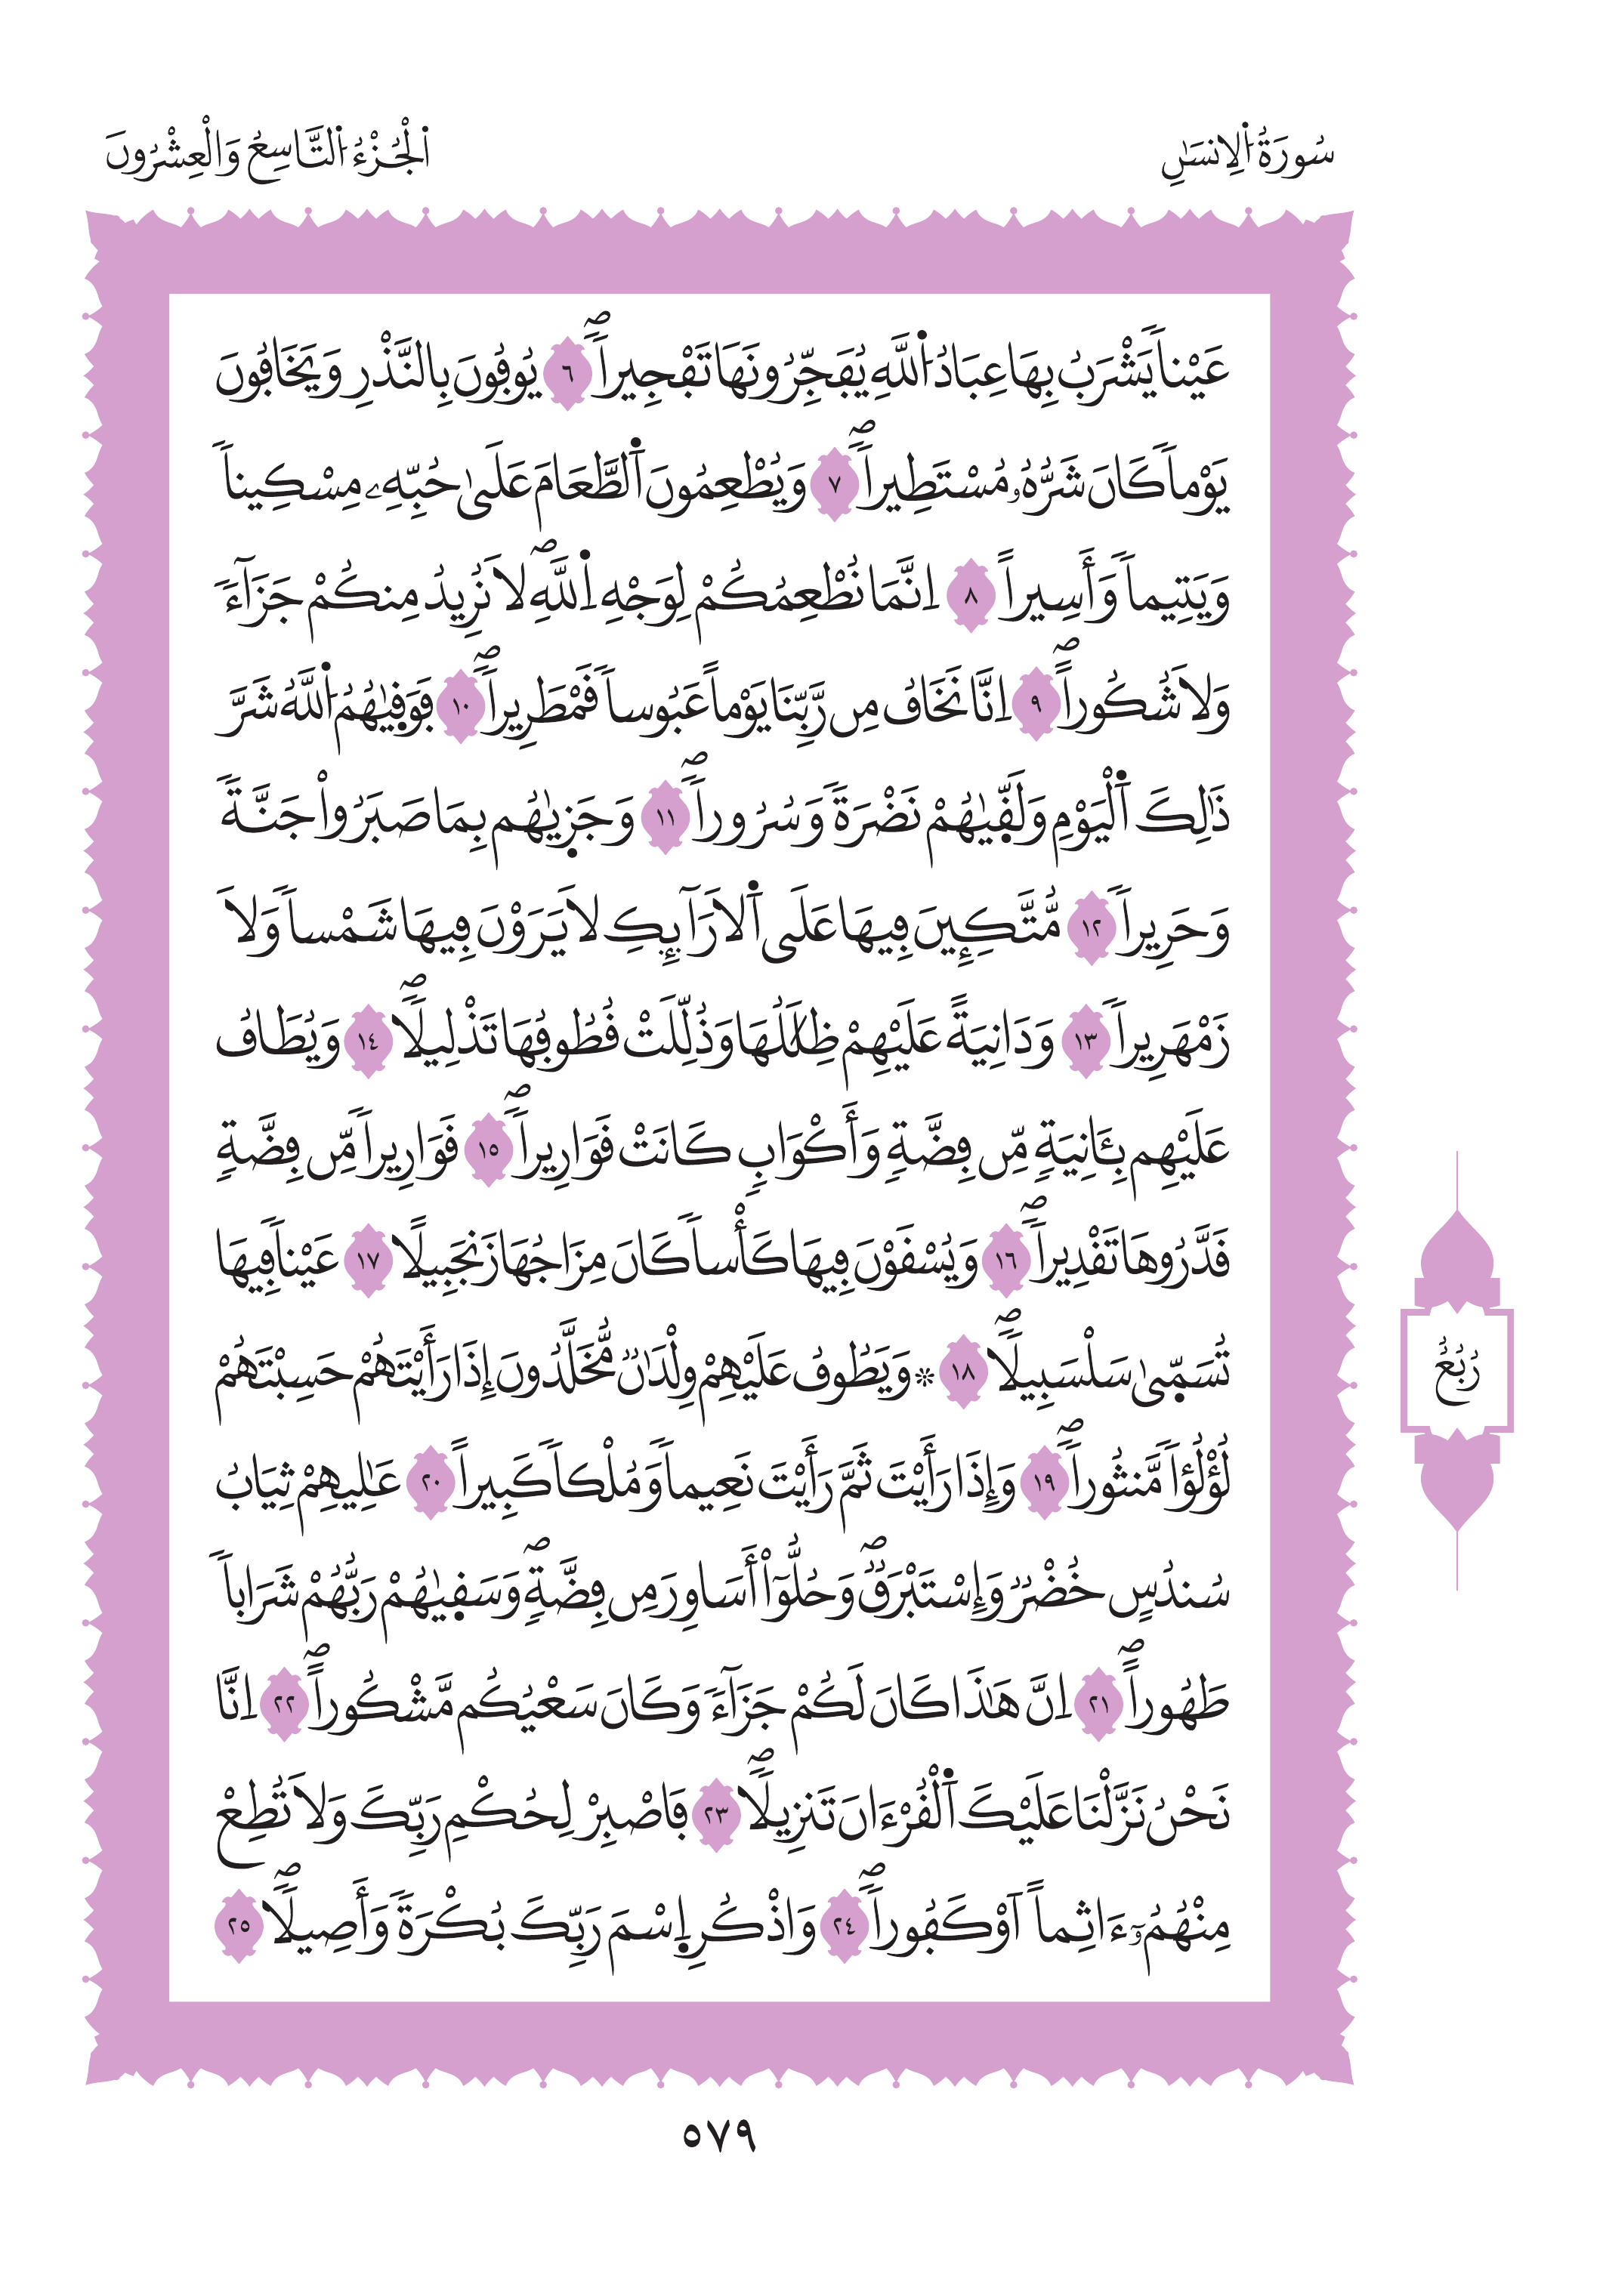 سُورَةُ الِانسَٰنِ
الْجُزْءُ التَّاسِعُ وَالْعِشْرُونَ
عَيْناٗ يَشْرَبُ بِهَا عِبَادُ اُ۬للَّهِ يُفَجِّرُونَهَا تَفْجِيراٗۖ ٦ يُوفُونَ بِالنَّذْرِ وَيَخَافُونَ
يَوْماٗ كَانَ شَرُّهُۥ مُسْتَطِيراٗۖ ٧ وَيُطْعِمُونَ اَ۬لطَّعَامَ عَلَىٰ حُبِّهِۦ مِسْكِيناٗ
وَيَتِيماٗ وَأَسِيراً ٨ اِنَّمَا نُطْعِمُكُمْ لِوَجْهِ اِ۬للَّهِۖ لَا نُرِيدُ مِنكُمْ جَزَآءٗ
وَلَا شُكُوراًۖ ٩ اِنَّا نَخَافُ مِن رَّبِّنَا يَوْماً عَبُوساٗ قَمْطَرِيراٗۖ ١٠ فَوَقِيٰهُمُ اُ۬للَّهُ شَرَّ
ذَٰلِكَ اَ۬لْيَوْمِ وَلَقِّيٰهُمْ نَضْرَةٗ وَسُرُوراٗۖ ١١ وَجَزِيٰهُم بِمَا صَبَرُواْ جَنَّةٗ
وَحَرِيراٗ ١٢ مُّتَّكِـِٕينَ فِيهَا عَلَى اَ۬لَارَآئِكِ لَا يَرَوْنَ فِيهَا شَمْساٗ وَلَا
زَمْهَرِيراٗ ١٣ وَدَانِيَةً عَلَيْهِمْ ظِلَٰلُهَا وَذُلِّلَتْ قُطُوفُهَا تَذْلِيلاٗۖ ١٤ وَيُطَافُ
عَلَيْهِم بِـَٔانِيَةٖ مِّن فِضَّةٖ وَأَكْوَابٖ كَانَتْ قَوَارِيراٗۖ ١٥ قَوَارِيراٗ مِّن فِضَّةٖ
قَدَّرُوهَا تَقْدِيراٗۖ ١٦ وَيُسْقَوْنَ فِيهَا كَأْساٗ كَانَ مِزَاجُهَا زَنجَبِيلاً ١٧ عَيْناٗ فِيهَا
تُسَمّ۪ىٰ سَلْسَبِيلاٗۖ ١٨ ۞ وَيَطُوفُ عَلَيْهِمْ وِلْدَٰنٞ مُّخَلَّدُونَ إِذَا رَأَيْتَهُمْ حَسِبْتَهُمْ
لُؤْلُؤاٗ مَّنثُوراٗۖ ١٩ وَإِذَا رَأَيْتَ ثَمَّ رَأَيْتَ نَعِيماٗ وَمُلْكاٗ كَبِيراً ٢٠ عَٰلِيهِمْ ثِيَابُ
سُندُسٍ خُضْرٞ وَإِسْتَبْرَقٞۖ وَحُلُّوٓاْ أَسَاوِرَ مِن فِضَّةٖۖ وَسَق۪يٰهُمْ رَبُّهُمْ شَرَاباٗ
طَهُوراًۖ ٢١ اِنَّ هَٰذَا كَانَ لَكُمْ جَزَآءٗ وَكَانَ سَعْيُكُم مَّشْكُوراًۖ ٢٢ اِنَّا
نَحْنُ نَزَّلْنَا عَلَيْكَ اَ۬لْقُرْءَانَ تَنزِيلاٗۖ ٢٣ فَاصْبِرْ لِحُكْمِ رَبِّكَ وَلَا تُطِعْ
مِنْهُمُۥٓ ءَاثِماً اَوْ كَفُوراٗۖ ٢٤ وَاذْكُرِ اِ۪سْمَ رَبِّكَ بُكْرَةٗ وَأَصِيلاٗۖ ٢٥
رُبُعُ
٥٧٩